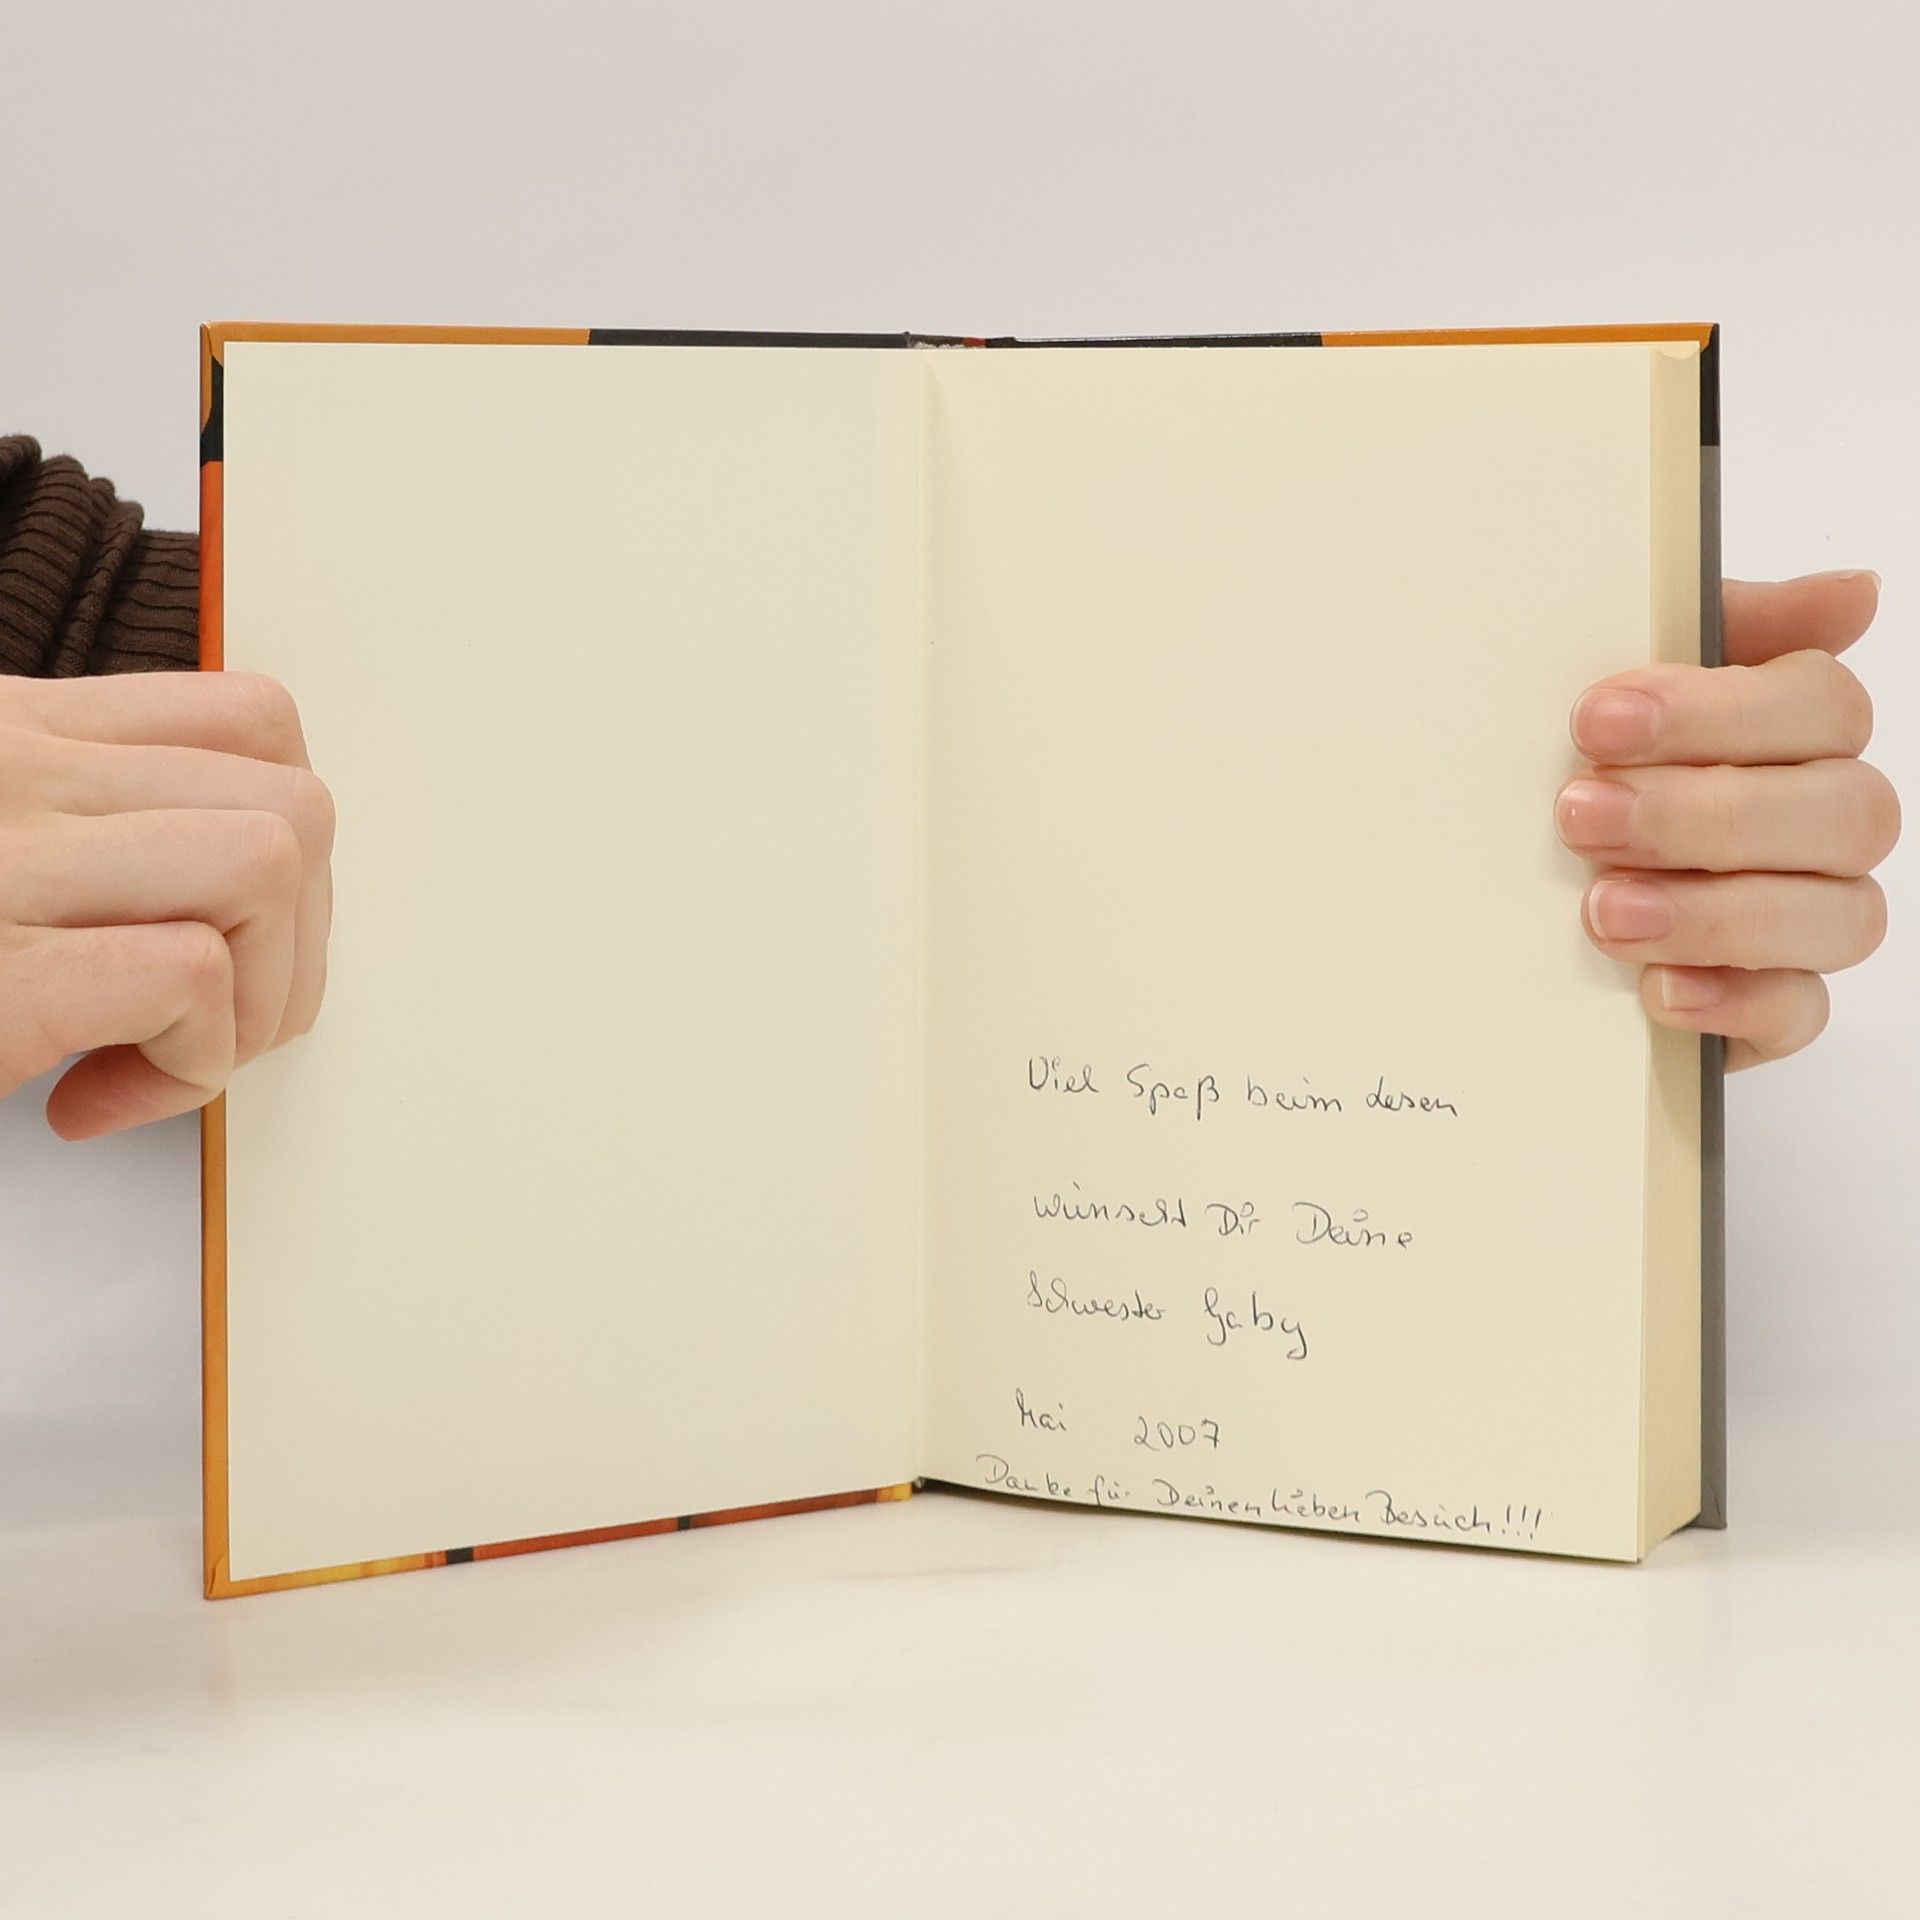 Viel Spaß beim Lesen
wünscht Dir Deine
Schwester Gaby
Mai 2007
Danke für Deinen lieben Besuch!!!